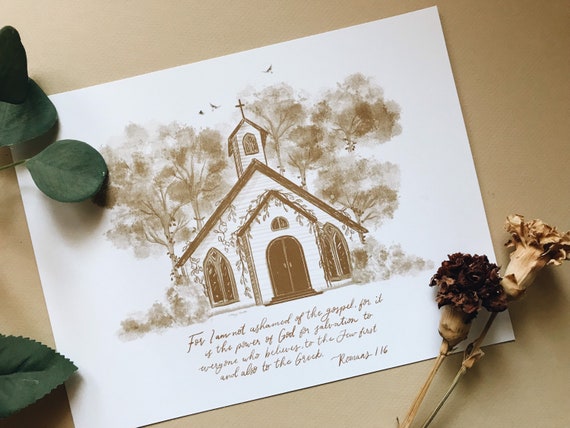 For I am not ashamed of the gospel, for it
is the power of God for salvation to
everyone who believes, to the Jew first
and also to the Greek. ~Romans 1:16